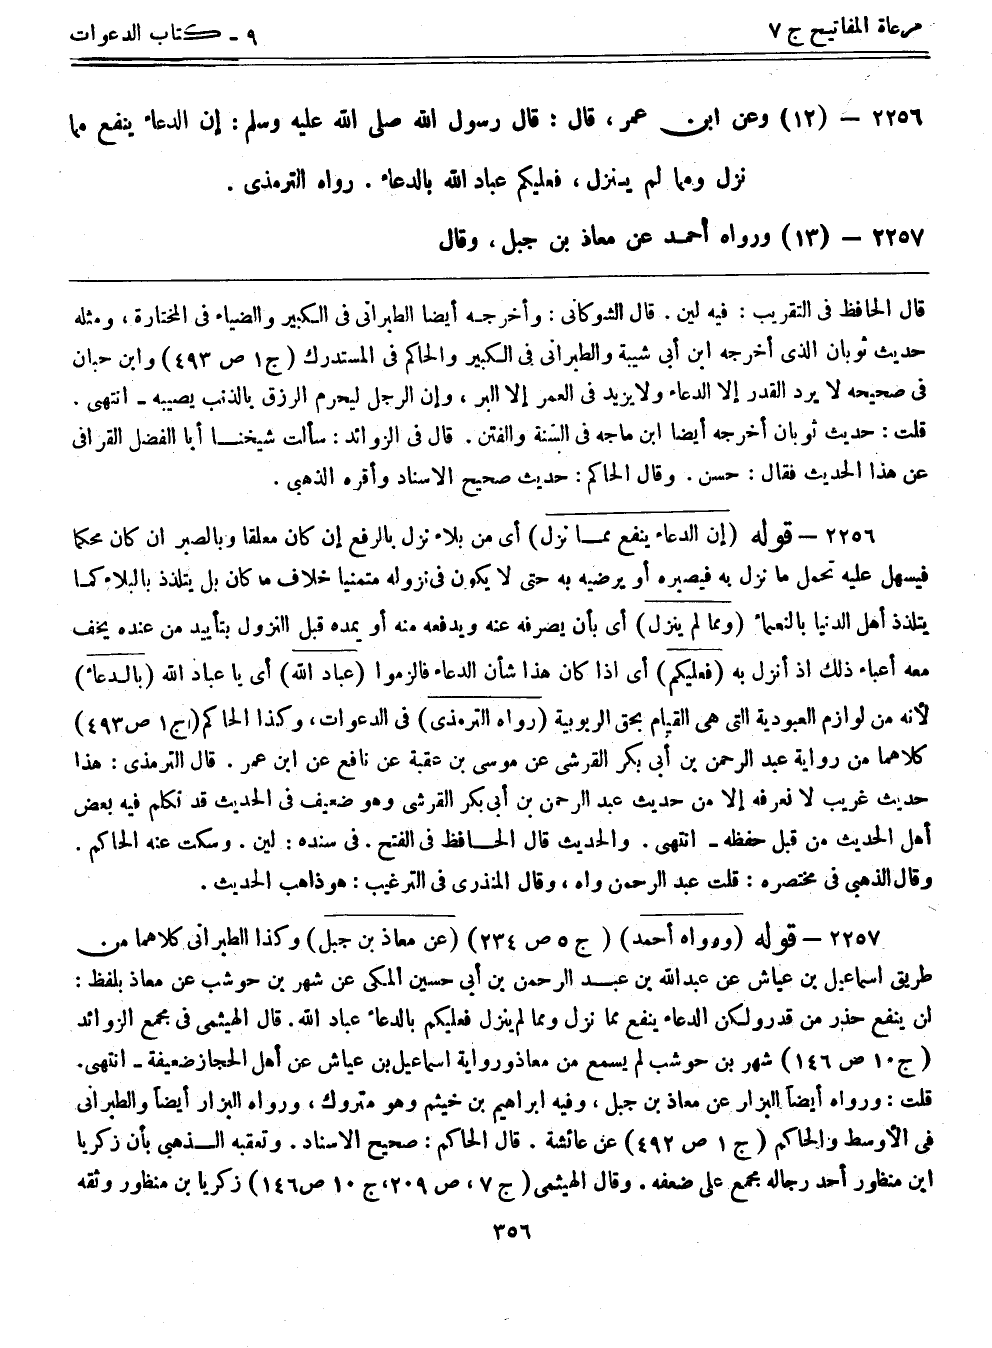 مرعاة المفاتيح ج ٧
٩ ـ كتاب الدعوات
٢٢٥٦ – (١٢) وعن ابن عمر، قال : قال رسول الله صلى الله عليه وسلم : إن الدعاء ينفع مما
نزل ومما لم ينزل، فعليكم عباد الله بالدعاء . رواه الترمذى .
٢٢٥٧ – (١٣) ورواه أحمد عن معاذ بن جبل، وقال
قال الحافظ فى التقريب : فيه لين . قال الشوكانى : وأخرجه أيضا الطبرانى فى الكبير والضياء فى المختارة ، ومثله
حديث ثوبان الذى أخرجه ابن أبى شيبة والطبرانى فى الكبير والحاكم فى المستدرك (ج١ ص ٤٩٣) وابن حبان
فى صحيحه لا يرد القدر إلا الدعاء ولايزيد فى العمر إلا البر ، وإن الرجل ليحرم الرزق بالذنب يصيبه ـ انتهى .
قلت : حديث ثوبان أخرجه أيضا ابن ماجه فى السنة والفتن . قال فى الزوائد : سألت شيخنا أبا الفضل القرافى
عن هذا الحديث فقال : حسن . وقال الحاكم : حديث صحيح الاسناد وأقره الذهبى .
٢٢٥٦ – قوله (إن الدعاء ينفع مما نزل) أى من بلاء نزل بالرفع إن كان معلقا وبالصبر ان كان محكما
فيسهل عليه تحمل ما نزل به فيصبره أو يرضيه به حتى لا يكون فى نزوله متمنيا خلاف ما كان بل يتلذذ بالبلاء كما
يتلذذ أهل الدنيا بالنعماء (ومما لم ينزل) أى بأن يصرفه عنه ويدفعه منه أو يمده قبل النزول بتأييد من عنده يخف
معه أعباء ذلك اذ أنزل به (فعليكم) أى اذا كان هذا شأن الدعاء فالزموا (عباد الله) أى يا عباد الله (بالدعاء)
لأنه من لوازم العبودية التى هى القيام بحق الربوبية (رواه الترمذى) فى الدعوات، وكذا الحاكم (ج١ ص٤٩٣)
كلاهما من رواية عبد الرحمن بن أبى بكر القرشى عن موسى بن عقبة عن نافع عن ابن عمر . قال الترمذى : هذا
حديث غريب لا نعرفه إلا من حديث عبد الرحمن بن أبى بكر القرشى وهو ضعيف فى الحديث قد تكلم فيه بعض
أهل الحديث من قبل حفظه ـ انتهى . والحديث قال الحافظ فى الفتح . فى سنده : لين . وسكت عنه الحاكم .
وقال الذهبى فى مختصره : قلت عبد الرحمن واه ، وقال المنذرى فى الترغيب : هو ذاهب الحديث .
٢٢٥٧ – قوله (ورواه أحمد) ( ج ٥ ص ٢٣٤) (عن معاذ بن جبل) وكذا الطبرانى كلاهما من
طريق اسماعيل بن عياش عن عبدالله بن عبد الرحمن بن أبى حسين المكى عن شهر بن حوشب عن معاذ بلفظ :
لن ينفع حذر من قدر ولكن الدعاء ينفع مما نزل ومما لم ينزل فعليكم بالدعاء عباد الله . قال الهيثمى فى مجمع الزوائد
(ج ١٠ ص ١٤٦) شهر بن حوشب لم يسمع من معاذ ورواية اسماعيل بن عياش عن أهل الحجاز ضعيفة ـ انتهى.
قلت : ورواه أيضاً البزار عن معاذ بن جبل ، وفيه ابراهيم بن خيثم وهو متروك ، ورواه البزار أيضاً والطبرانى
فى الأوسط والحاكم ( ج ١ ص ٤٩٢) عن عائشة . قال الحاكم : صحيح الاسناد . وتعقبه الذهبى بأن زكريا
ابن منظور أحد رجاله مجمع على ضعفه . وقال الهيثمى ( ج ٧ ، ص ٢٠٩، ج ١٠ ص١٤٦) زكريا بن منظور وثقه
٣٥٦